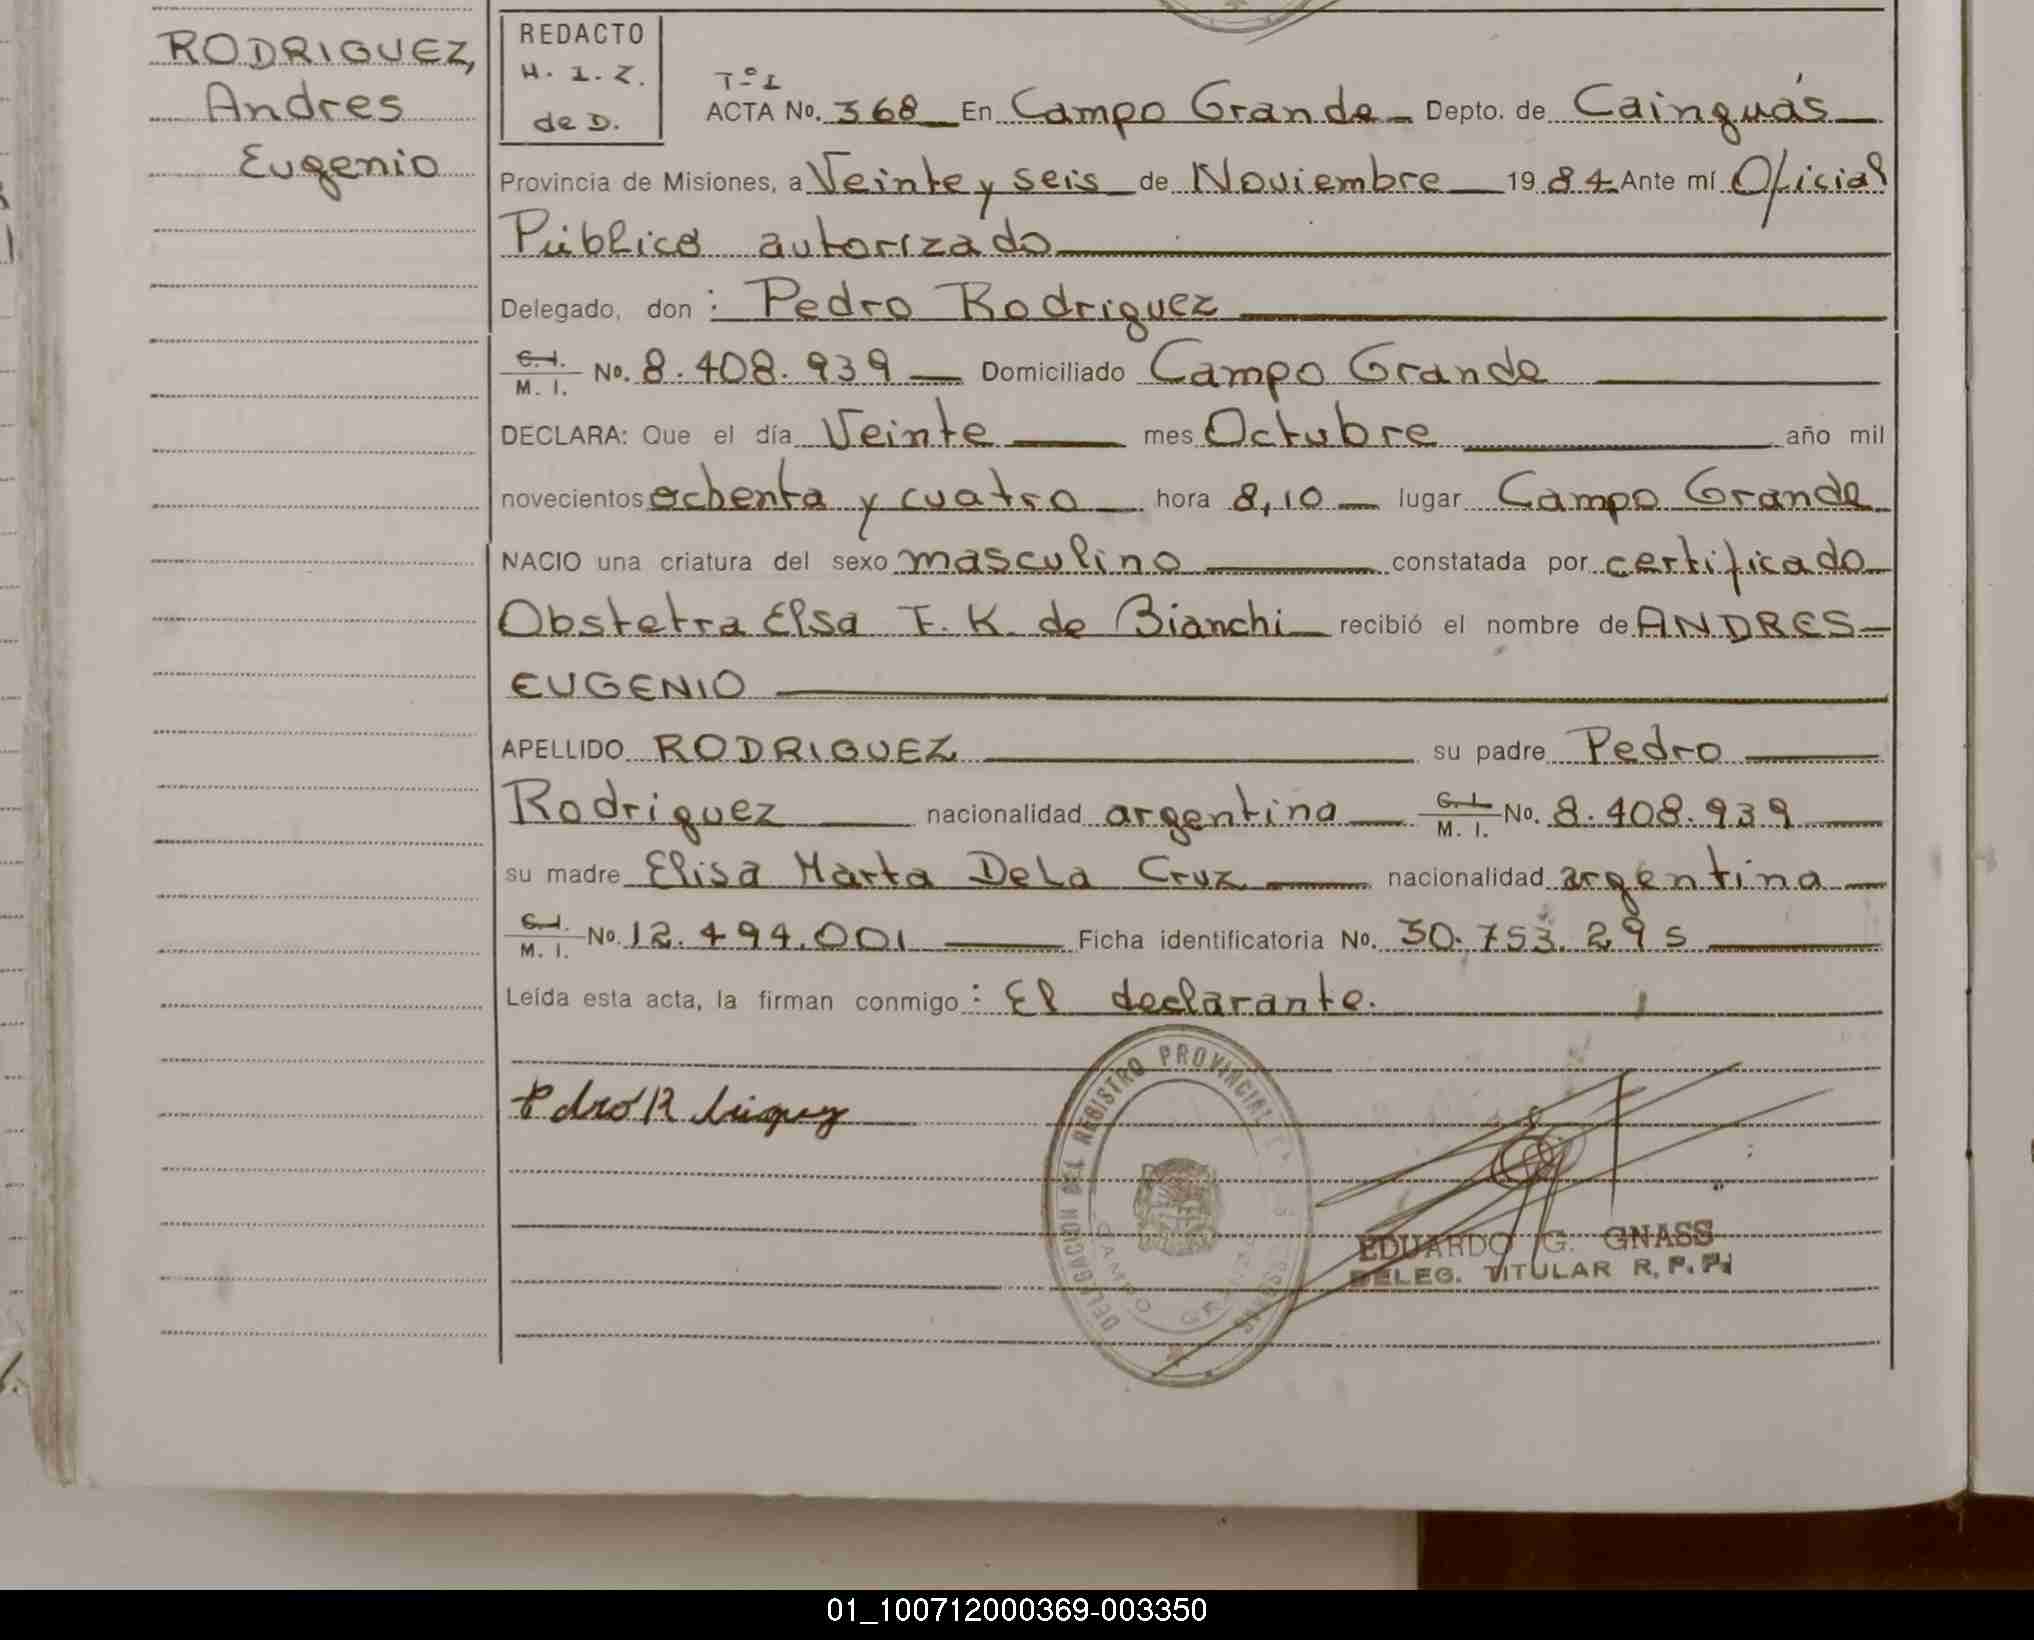 RODRIGUEZ,
Andres
Eugenio
REDACTO
H. I. Z.
de D.
Tº I
ACTA No. 368 En Campo Grande Depto. de Cainguás
Provincia de Misiones, a Veinte y seis de Noviembre 1984 Ante mí Oficial
Público autorizado
Delegado, don : Pedro Rodriguez
C. I. M. I. No. 8.408.939 Domiciliado Campo Grande
DECLARA: Que el día Veinte mes Octubre año mil
novecientos ochenta y cuatro hora 8,10 lugar Campo Grande
NACIO una criatura del sexo masculino constatada por certificado
Obstetra Elsa T. K. de Bianchi recibió el nombre de ANDRES
EUGENIO
APELLIDO RODRIGUEZ su padre Pedro
Rodriguez nacionalidad argentina C. I. M. I. No. 8.408.939
su madre Elisa Marta De La Cruz nacionalidad argentina
C. I. M. I. No. 12.494.001 Ficha identificatoria No. 30.753.295
Leída esta acta, la firman conmigo : El declarante.
DELEGACION DEL REGISTRO PROVINCIAL
CAMPO GRANDE
MISIONES
EDUARDO G. GNASS
DELEG. TITULAR R. P. P.
01_100712000369-003350